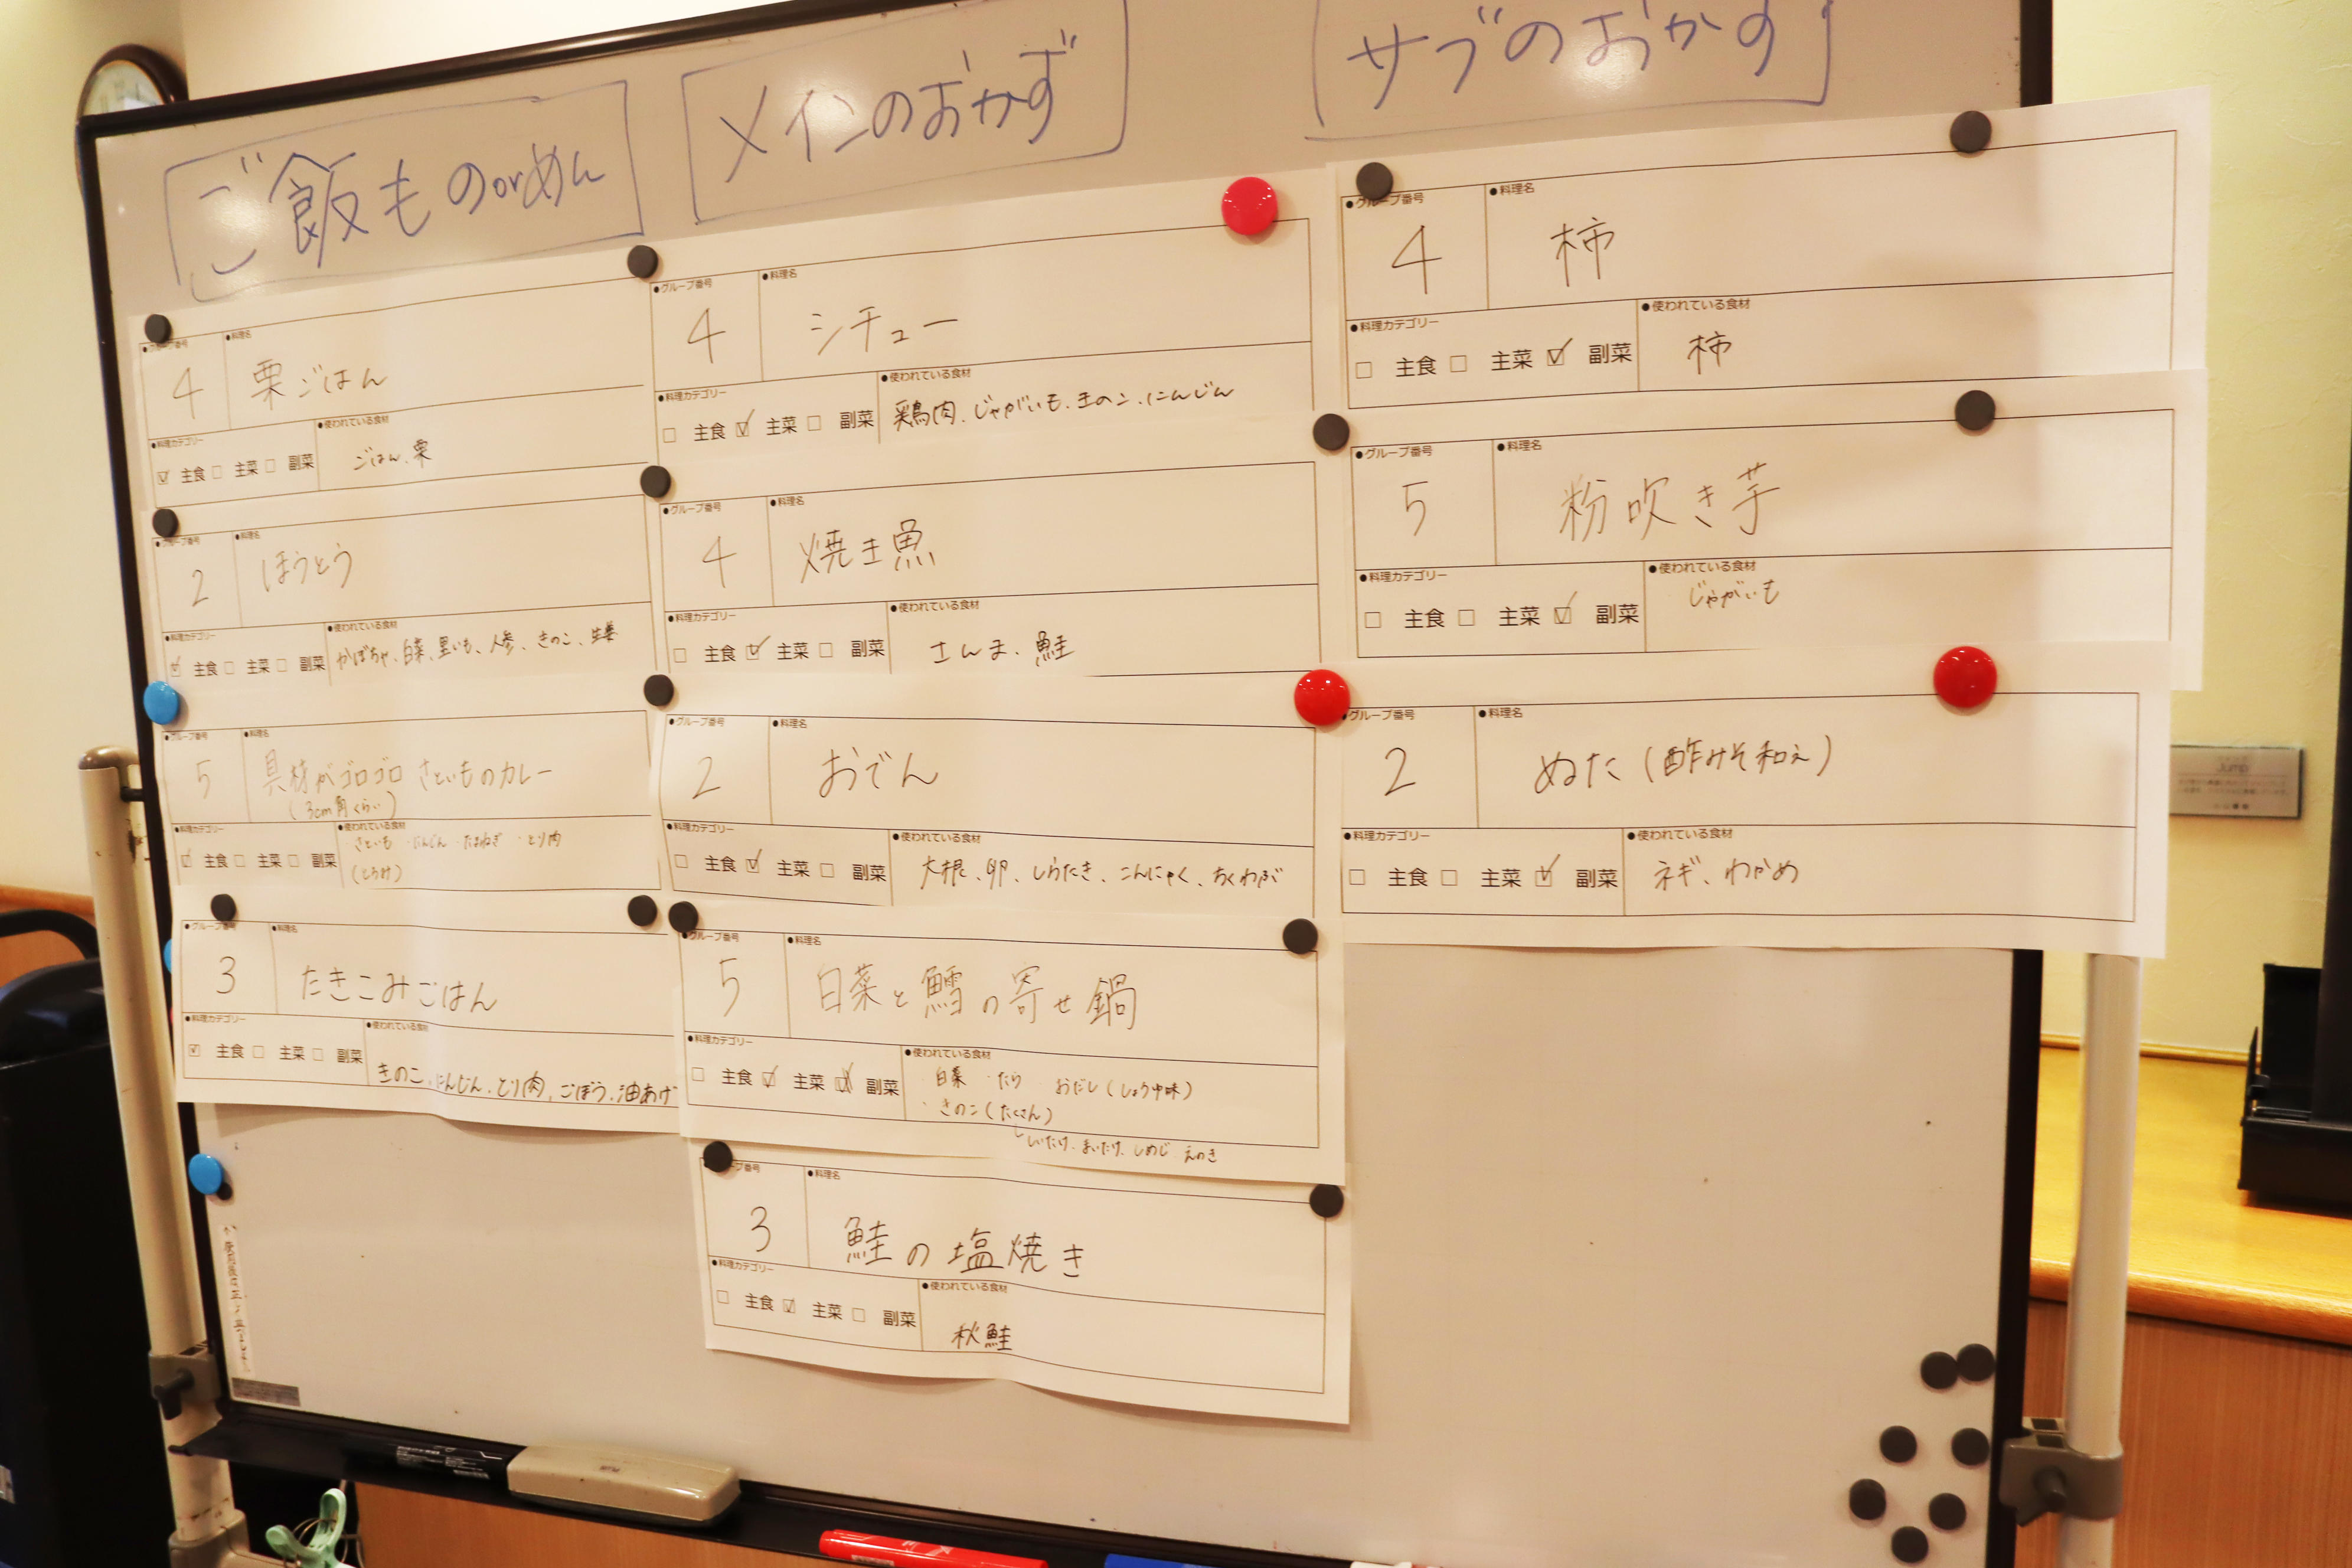 ご飯ものorめん
メインのおかず
サブのおかず
●グループ番号
●料理名
4
栗ごはん
●料理カテゴリー
☑ 主食 □ 主菜 □ 副菜
●使われている食材
ごはん、栗
グループ番号
●料理名
2
ほうとう
●料理カテゴリー
☑ 主食 □ 主菜 □ 副菜
●使われている食材
かぼちゃ、白菜、里いも、人参、きのこ、生姜
●グループ番号
●料理名
5
具材がゴロゴロ さといものカレー
(3cm角くらい)
●料理カテゴリー
☑ 主食 □ 主菜 □ 副菜
●使われている食材
・さといも ・にんじん ・たまねぎ ・とり肉
●グループ番号
●料理名
3
たきこみごはん
●料理カテゴリー
☑ 主食 □ 主菜 □ 副菜
●使われている食材
きのこ、にんじん、とり肉、ごぼう、油あげ
●グループ番号
●料理名
4
シチュー
●料理カテゴリー
□ 主食 ☑ 主菜 □ 副菜
●使われている食材
鶏肉、じゃがいも、きのこ、にんじん
●グループ番号
●料理名
4
焼き魚
●料理カテゴリー
□ 主食 ☑ 主菜 □ 副菜
●使われている食材
さんま、鮭
●グループ番号
●料理名
2
おでん
●料理カテゴリー
□ 主食 ☑ 主菜 □ 副菜
●使われている食材
大根、卵、しらたき、こんにゃく、ちくわぶ
●グループ番号
●料理名
5
白菜と鱈の寄せ鍋
●料理カテゴリー
□ 主食 ☑ 主菜 ☑ 副菜
●使われている食材
・白菜 ・たら おだし(しょうゆ味)
・きのこ(たくさん)
しいたけ、まいたけ、しめじ えのき
ープ番号
●料理名
3
鮭の塩焼き
●料理カテゴリー
□ 主食 ☑ 主菜 □ 副菜
●使われている食材
秋鮭
●グループ番号
●料理名
4
柿
●料理カテゴリー
□ 主食 □ 主菜 ☑ 副菜
●使われている食材
柿
●グループ番号
●料理名
5
粉吹き芋
●料理カテゴリー
□ 主食 □ 主菜 ☑ 副菜
●使われている食材
じゃがいも
グループ番号
●料理名
2
ぬた(酢みそ和え)
●料理カテゴリー
□ 主食 □ 主菜 ☑ 副菜
●使われている食材
ネギ、わかめ